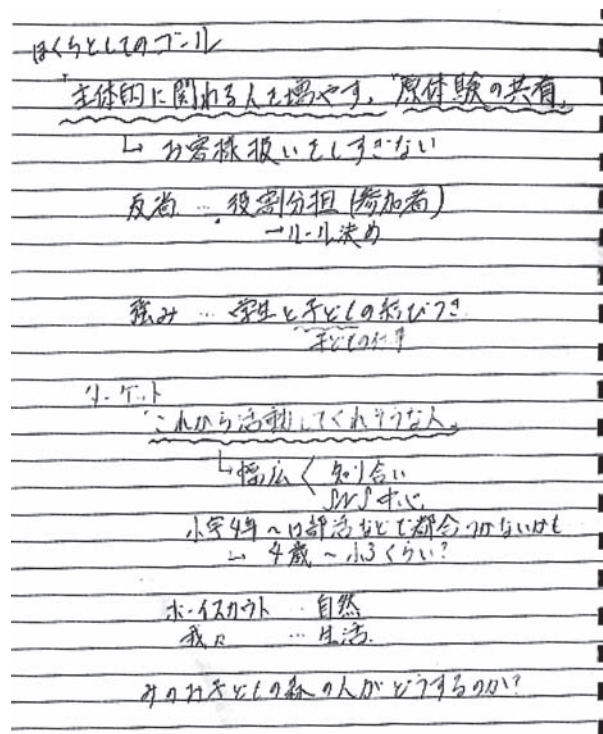 ぼくらとしてのゴール
「主体的に関わる人を増やす」「原体験の共有」
↳ お客様扱いをしすぎない
反省 … 役割分担(参加者)
→ルール決め
強み … 学生と子どもの結びつき
子どもの
ターゲット
「これから活動してくれそうな人」
↳幅広く 知り合い
SNS中心
小学4年〜は部活などで都合つかないかも
↳ 4歳〜小3くらい?
ボーイスカウト … 自然
我々 … 生活
みのお子どもの森の人がどうするのか?